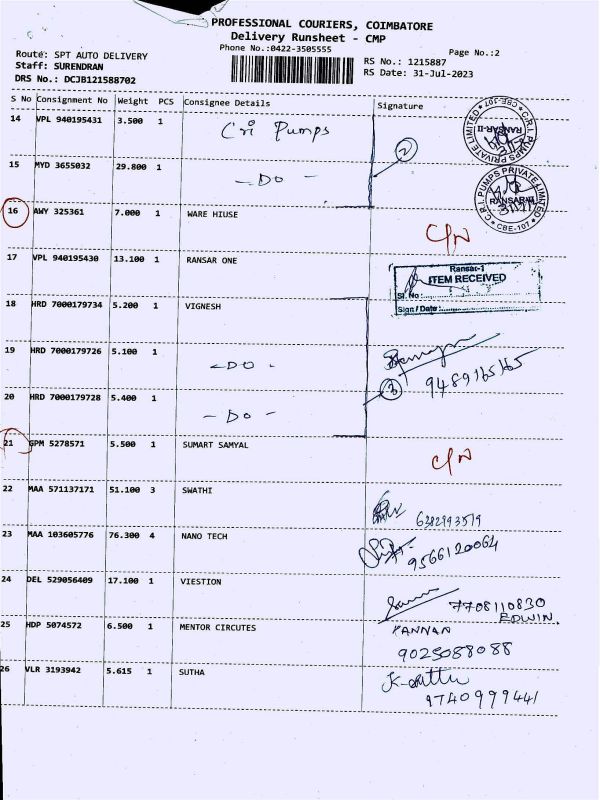 PROFESSIONAL COURIERS, COIMBATORE
Delivery Runsheet - CMP
Phone No.:0422-3505555
Page No.:2
Route: SPT AUTO DELIVERY
Staff: SURENDRAN
DRS No.: DCJB121588702
RS No.: 1215887
RS Date: 31-Jul-2023
S No Consignment No Weight PCS Consignee Details Signature
14 VPL 940195431 3.500 1 Cri Pumps
C.R.I. PUMPS PRIVATE LIMITED
CBE-107
RANSAR-II
2
15 MYD 3655032 29.800 1 -DO-
C.R.I. PUMPS PRIVATE LIMITED
RANSAR-II
CBE-107
16 AWY 325361 7.000 1 WARE HIUSE
C/N
17 VPL 940195430 13.100 1 RANSAR ONE
Ransar-1
ITEM RECEIVED
Sl. No :
Sign / Date :
18 HRD 7000179734 5.200 1 VIGNESH
19 HRD 7000179726 5.100 1 -DO-
9489165165
3
20 HRD 7000179728 5.400 1 -DO-
21 GPM 5278571 5.500 1 SUMART SAMYAL
C/N
22 MAA 571137171 51.100 3 SWATHI
6382793519
23 MAA 103605776 76.300 4 NANO TECH
9566120064
24 DEL 529056409 17.100 1 VIESTION
7708110830
EDWIN.
25 HDP 5074572 6.500 1 MENTOR CIRCUTES
KANNAN
9025088088
26 VLR 3193942 5.615 1 SUTHA
9740999441